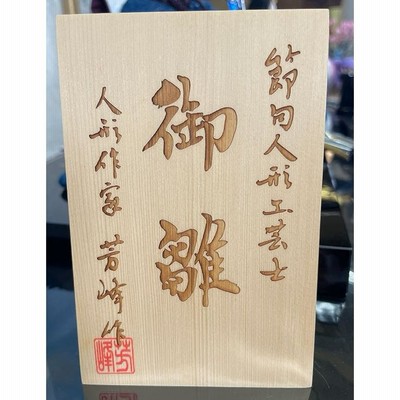 節句人形工芸士
御雛
人形作家 芳峰作
芳峰